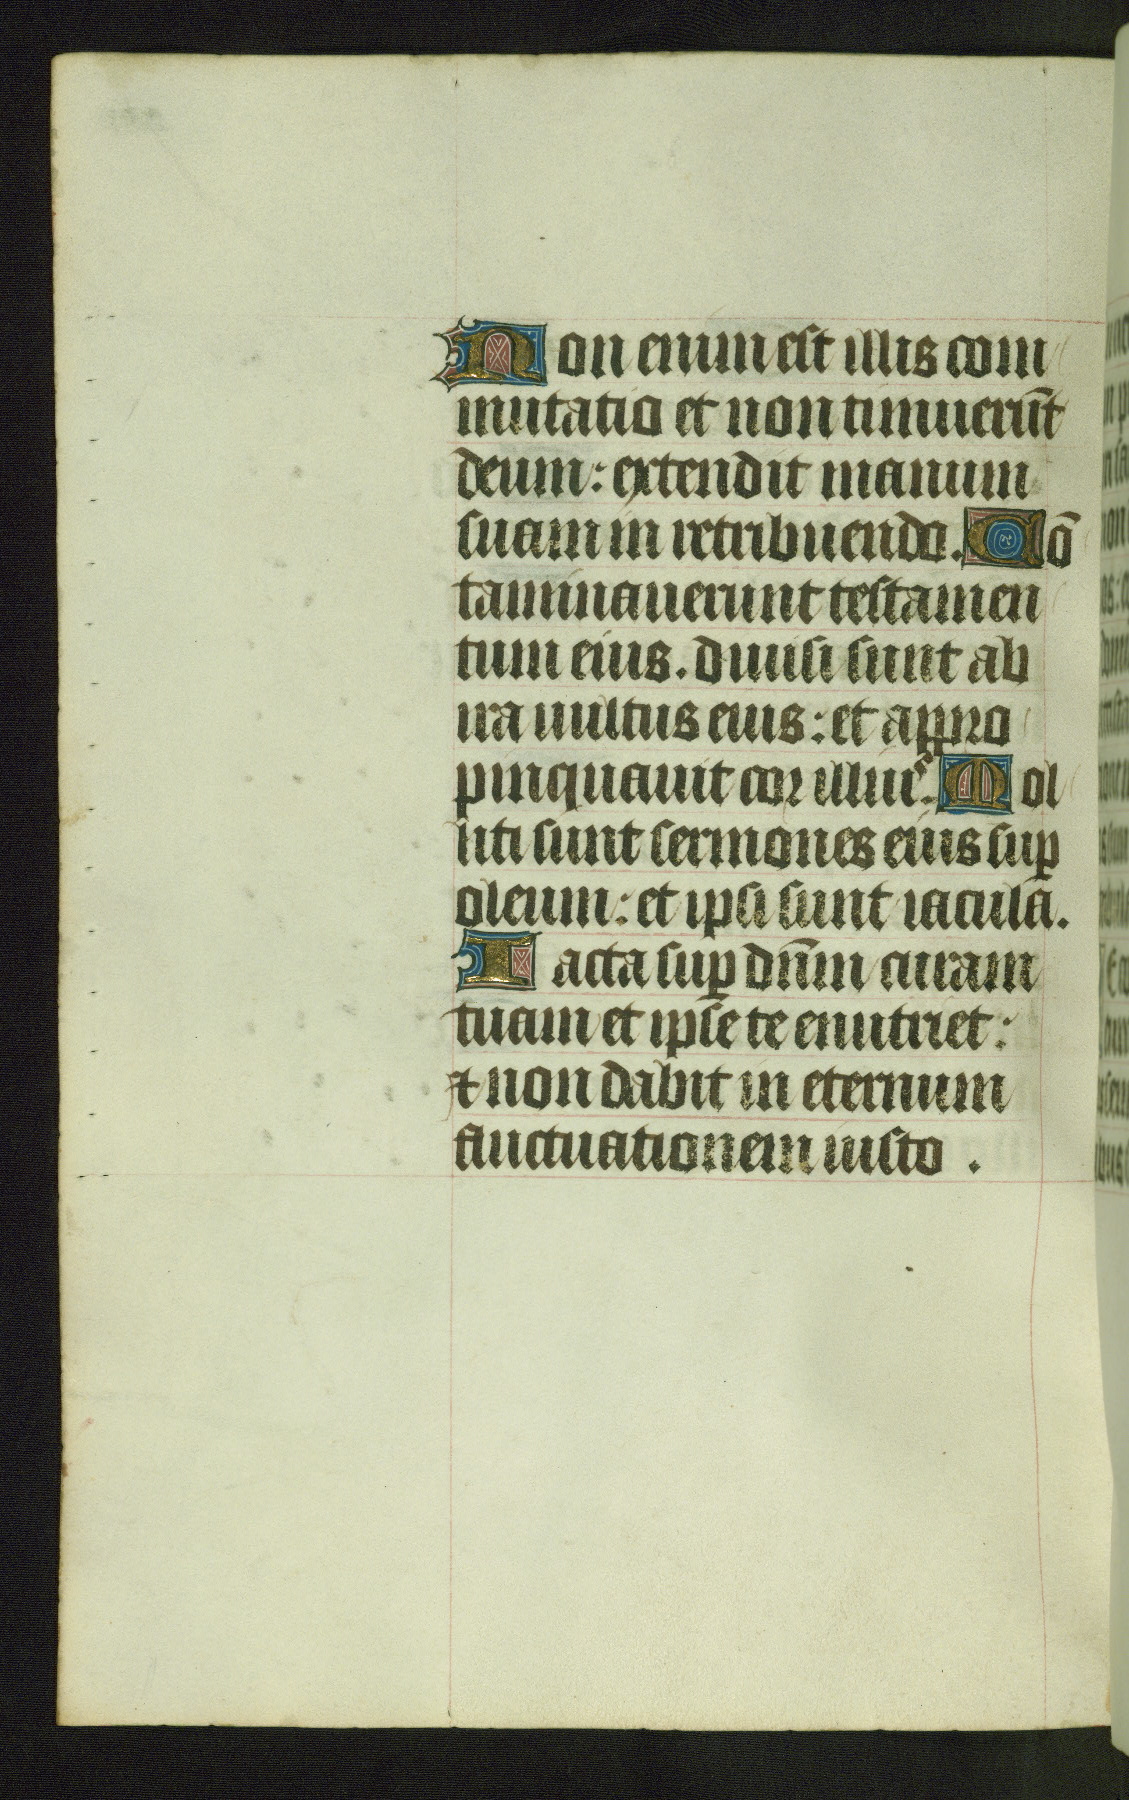 Non enim est illis com
mutatio et non timuerūt
deum: extendit manum
suam in retribuendo. Cō
taminauerunt testamen
tum eius. diuisi sunt ab
ira uultus eius: et appro
pinquauit cor illiuˢ. Mol
liti sunt sermones eius sup̱
oleum: et ipsi sunt iacula.
Iacta sup̱ dn̄m curam
tuam et ipse te enutriet:
⁊ non dabit in eternum
fluctuationem iusto .